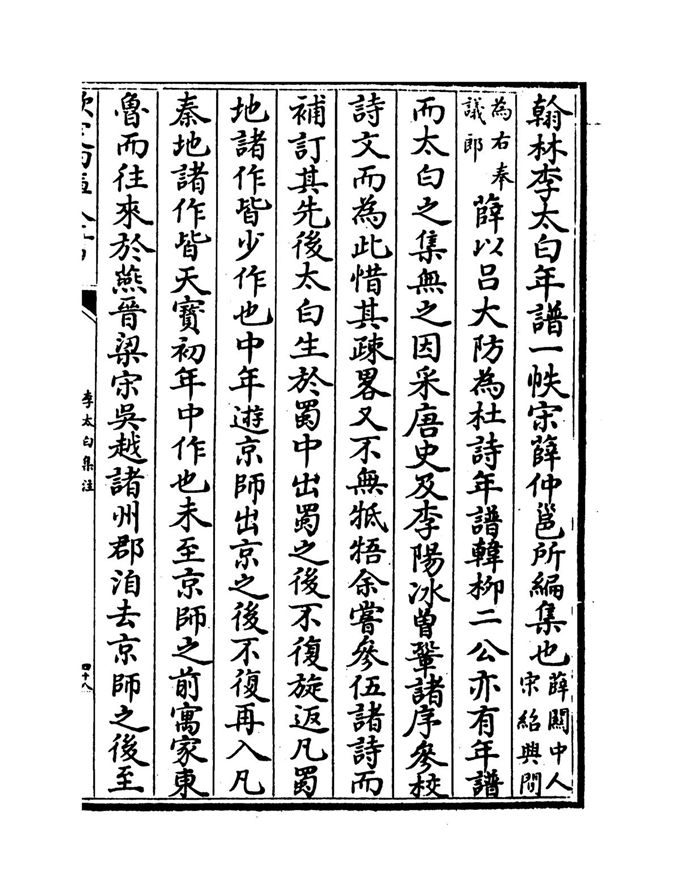 翰林李太白年譜一帙宋薛仲邕所編集也薛關中人宋紹興間
為右奉議郎薛以吕大防為杜詩年譜韓栁二公亦有年譜
而太白之集無之因采唐史及李陽冰曾鞏諸序參校
詩文而為此惜其疎畧又不無牴牾余嘗參伍諸詩而
補訂其先後太白生於蜀中出蜀之後不復旋返凡蜀
地諸作皆少作也中年遊京師出京之後不復再入凡
秦地諸作皆天寳初年中作也未至京師之前寓家東
魯而往來於燕晉梁宋吳越諸州郡洎去京師之後至
李太白集注
四十八